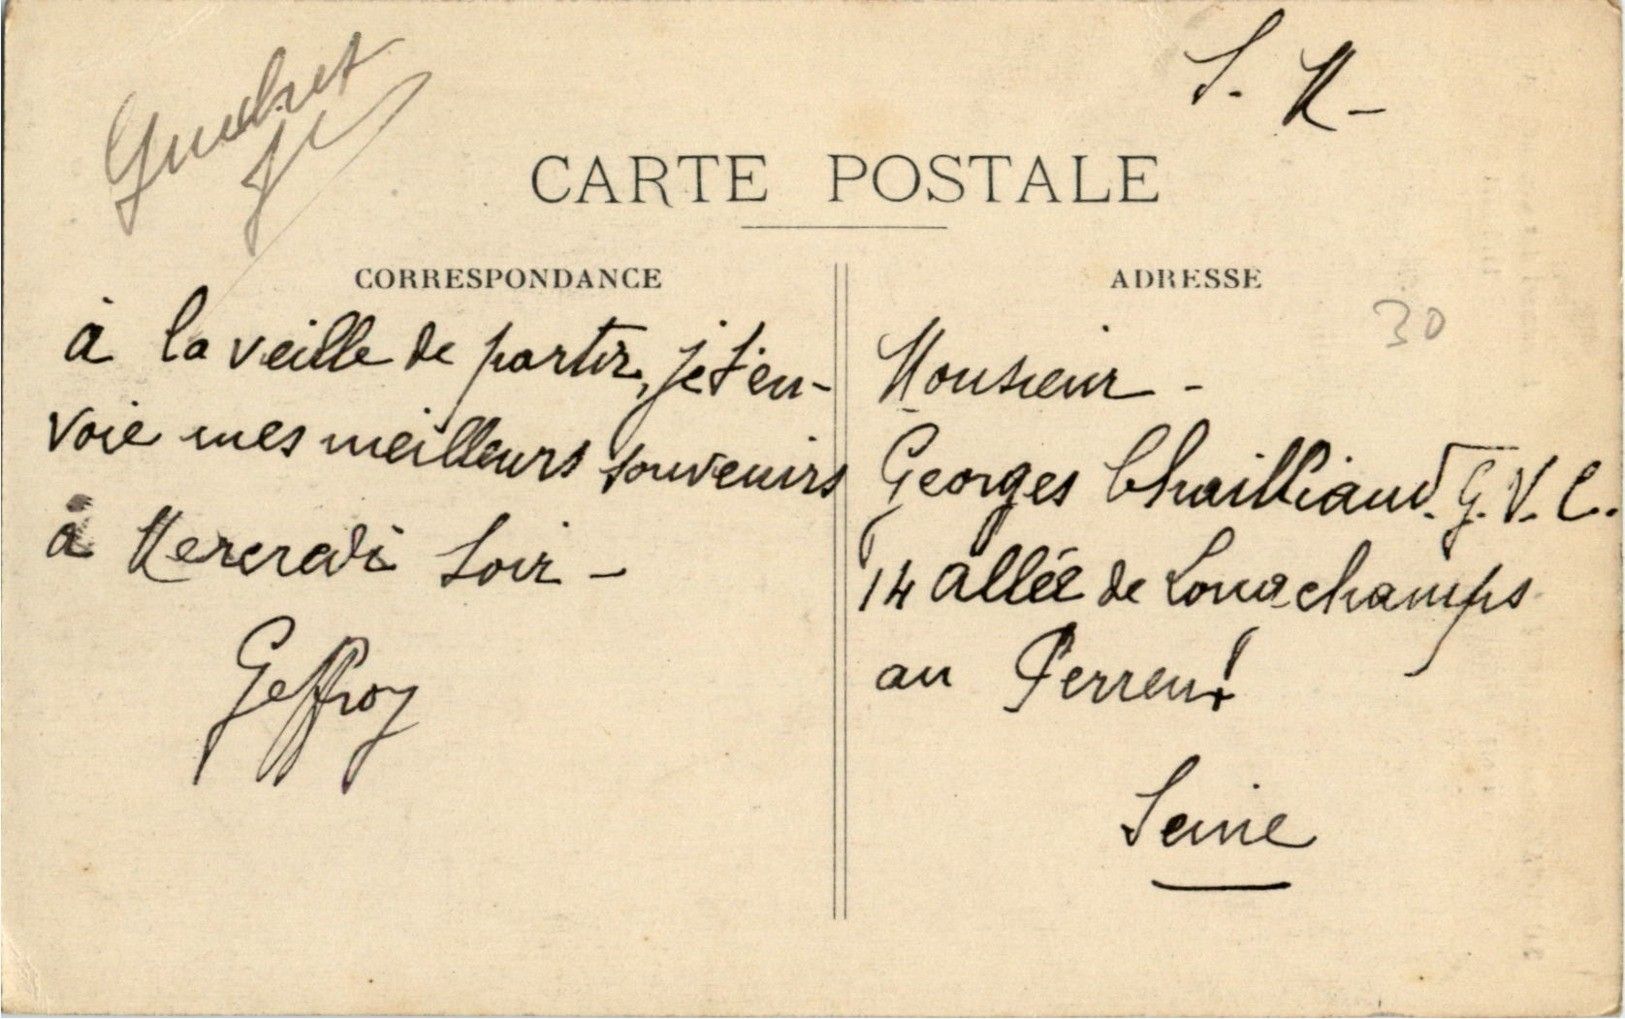 S. M -
CARTE POSTALE
CORRESPONDANCE
à la veille de partir, je t'en-
voie mes meilleurs souvenirs
à Mercredi Soir -
Geffroy
ADRESSE
30
Monsieur -
Georges Chailliaud. G. V. C.
14 allée de Longchamps
au Perreux
Seine